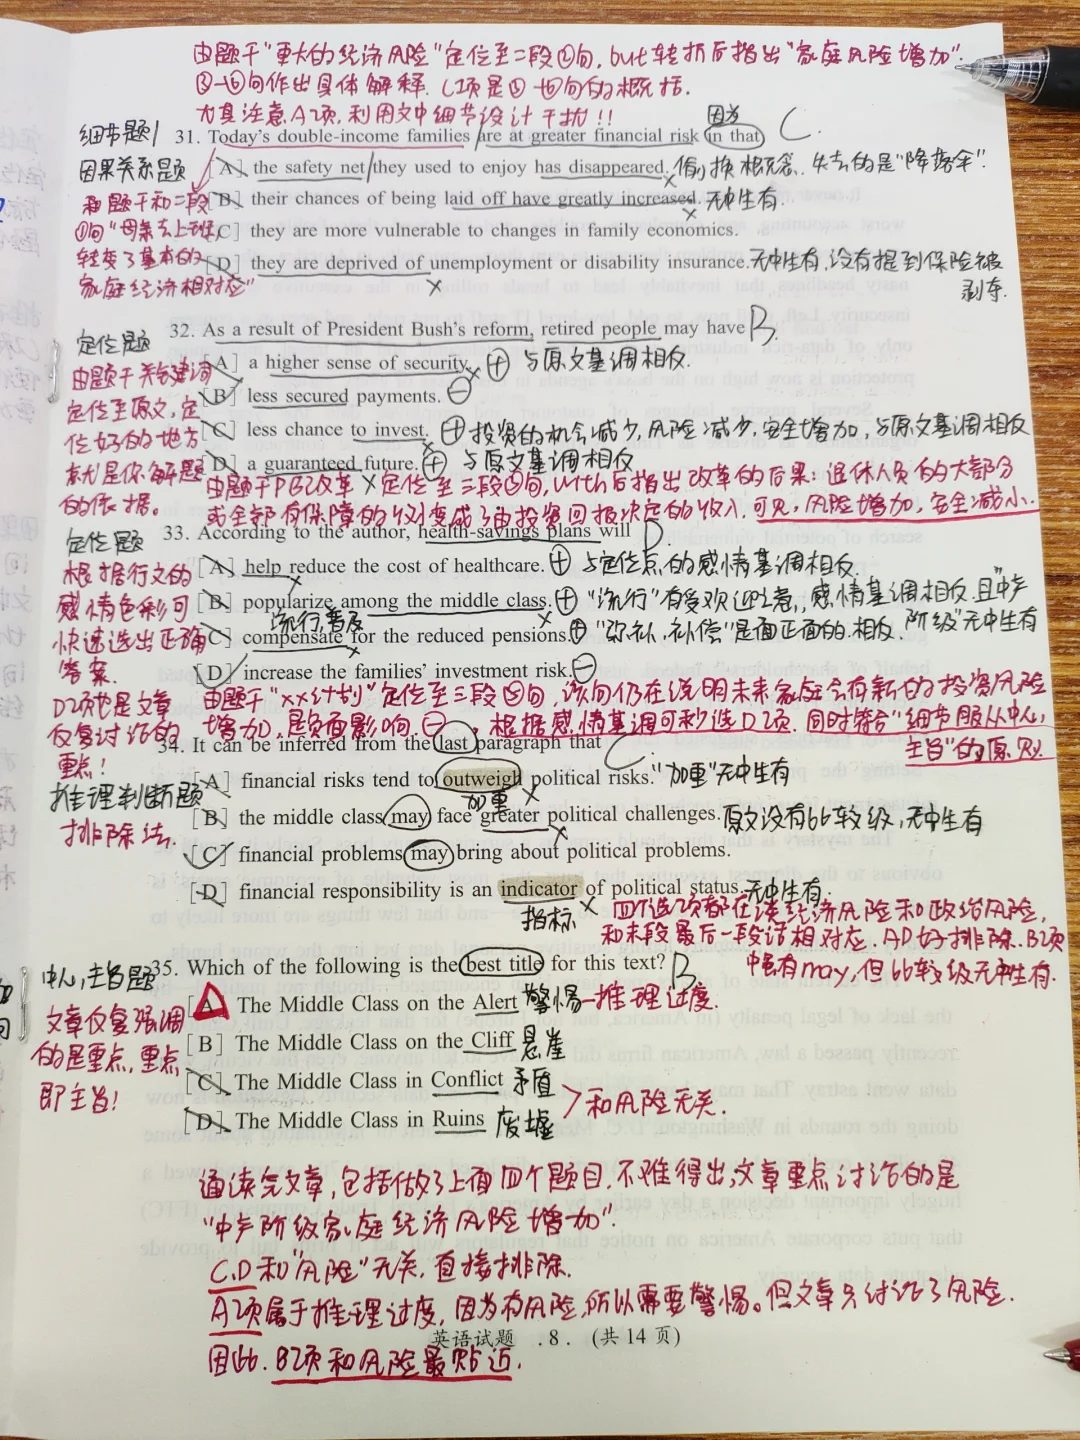 由题干"更大的经济风险"定位至二段②句,but转折后指出"家庭风险增加".
③-④句作出具体解释. C项是③-④句的概括.
尤其注意A项,利用文中细节设计干扰!!
因为
细节题
因果关系题
31. Today's double-income families are at greater financial risk in that C.
[A] the safety net they used to enjoy has disappeared. 偷换概念. 失去的是"降落伞".
[B] their chances of being laid off have greatly increased. 无中生有.
[C] they are more vulnerable to changes in family economics.
[D] they are deprived of unemployment or disability insurance. 无中生有,没有提到保险被
剥夺.
和题干和二段
①句"母亲去上班,
转变了基本的
家庭经济相对应"
定位题
32. As a result of President Bush's reform, retired people may have B.
[A] a higher sense of security. ⊕ 与原文基调相反.
[B] less secured payments. ⊖
[C] less chance to invest. ⊕ 投资的机会减少,风险减少,安全增加,与原文基调相反
[D] a guaranteed future. ⊕ 与原文基调相反
由题干关键词
定位至原文,定
位好的地方
就是你解题
的依据.
定位至三段⑤句,with后指出改革的后果:退休人员的大部分
或全部有保障的收入变成了由投资回报决定的收入,可见,风险增加,安全减小.
定位题
33. According to the author, health-savings plans will D.
[A] help reduce the cost of healthcare. ⊕ 与定位点的感情基调相反.
[B] popularize among the middle class. ⊕ "流行"有受欢迎之意,感情基调相反.且"中产
阶级"无中生有
流行,普及
[C] compensate for the reduced pensions. ⊕ "弥补,补偿"是面正面的.相反.
[D] increase the families' investment risk. ⊖
根据行文的
感情色彩可
快速选出正确
答案.
D项也是文章
反复讨论的
重点!
由题干"xx计划"定位至三段⑤句,该句仍在说明未来家庭会有新的投资风险
增加,是负面影响,⊖,根据感情基调可秒选D项. 同时符合"细节服从中心,
主旨"的原则
推理判断题
排除法.
34. It can be inferred from the last paragraph that C
[A] financial risks tend to outweigh political risks. "加重"无中生有
加重
[B] the middle class may face greater political challenges. 原文没有比较级,无中生有
[C] financial problems may bring about political problems.
[D] financial responsibility is an indicator of political status. 无中生有.
指标
四个选项都在谈经济风险和政治风险,
和末段最后一段话相对应. AD好排除. B项
中虽有may,但比较级无中生有.
中心,主旨题
35. Which of the following is the best title for this text? B.
[A] The Middle Class on the Alert 警惕-推理过度.
[B] The Middle Class on the Cliff 悬崖
[C] The Middle Class in Conflict 矛盾
[D] The Middle Class in Ruins 废墟
>和风险无关.
文章反复强调
的是重点,重点
即主旨!
通读完文章,包括做了上面四个题目,不难得出,文章重点讨论的是
"中产阶级家庭经济风险增加".
C.D和"风险"无关,直接排除.
A项属于推理过度,因为有风险,所以需要警惕。但文章只讨论了风险.
因此.B项和风险最贴近.
英语试题 .8. (共14页)